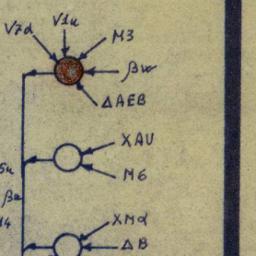 V7d V1u
M3
βw
ΔAEB
XAU
M6
XMα
ΔB